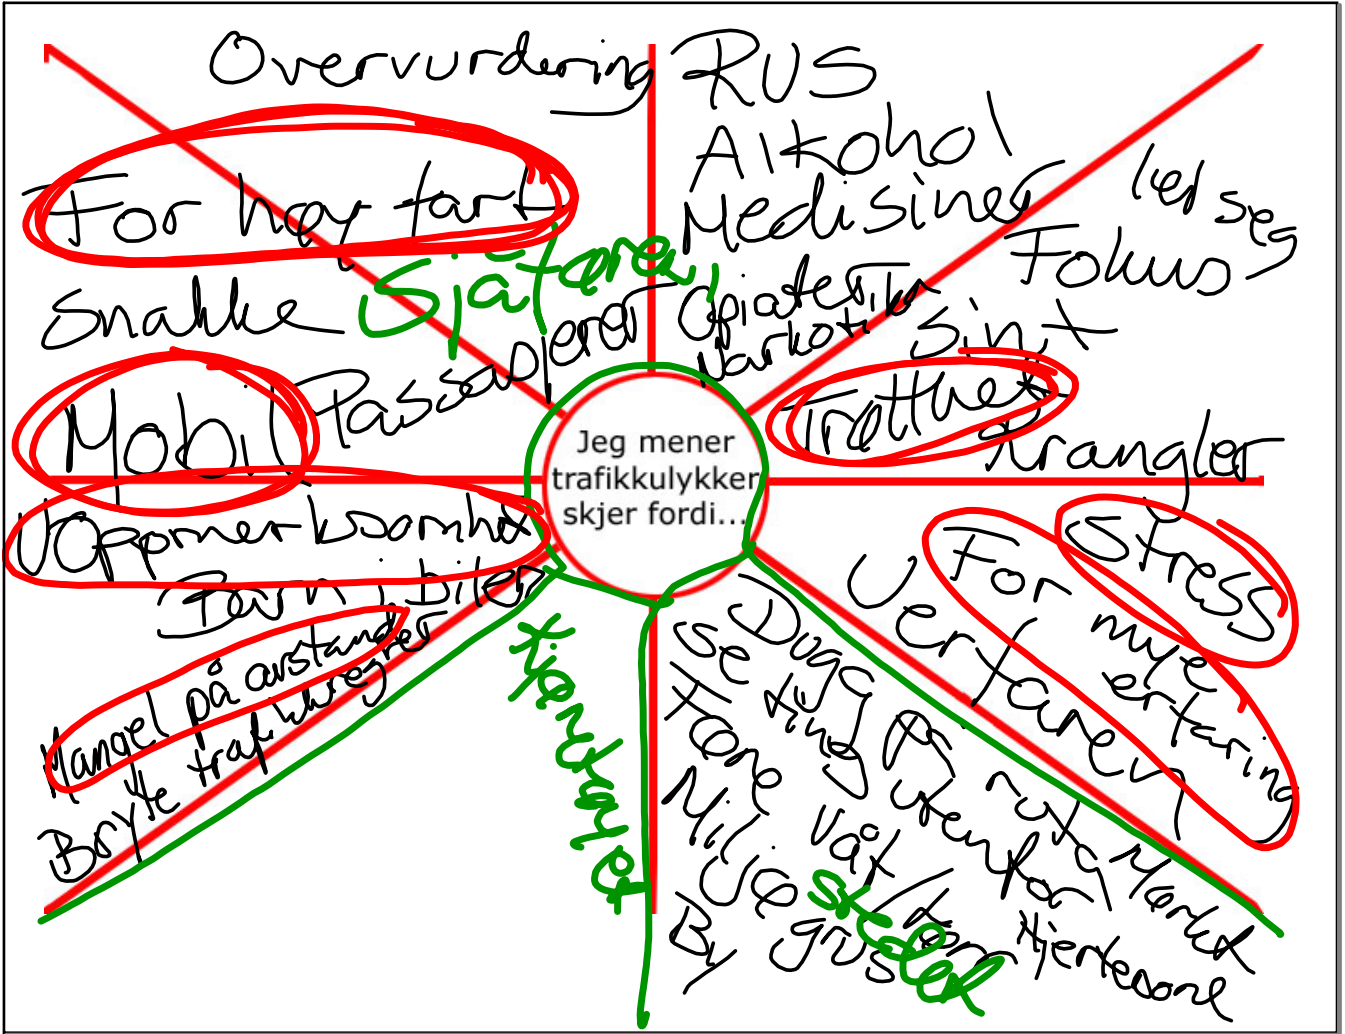 Overvurdering
For høy fart
Snakke
Sjåføren
Passasjerer
Mobil
Uoppmerksomhet
Barn i bilen
Mangel på avstand
Bryte trafikkregler
RUS
Alkohol
Medisiner
Opiater
Narkotika
lei seg
Fokus
sint
Trøtthet
krangler
Jeg mener
trafikkulykker
skjer fordi...
Stress
For mye erfaring
Uerfaren
Dugg på ruta
Mørkt
se ting utenfor
Hjertesone
Føre
våt
Miljø
By
grus
stedet
Kjøretøyet